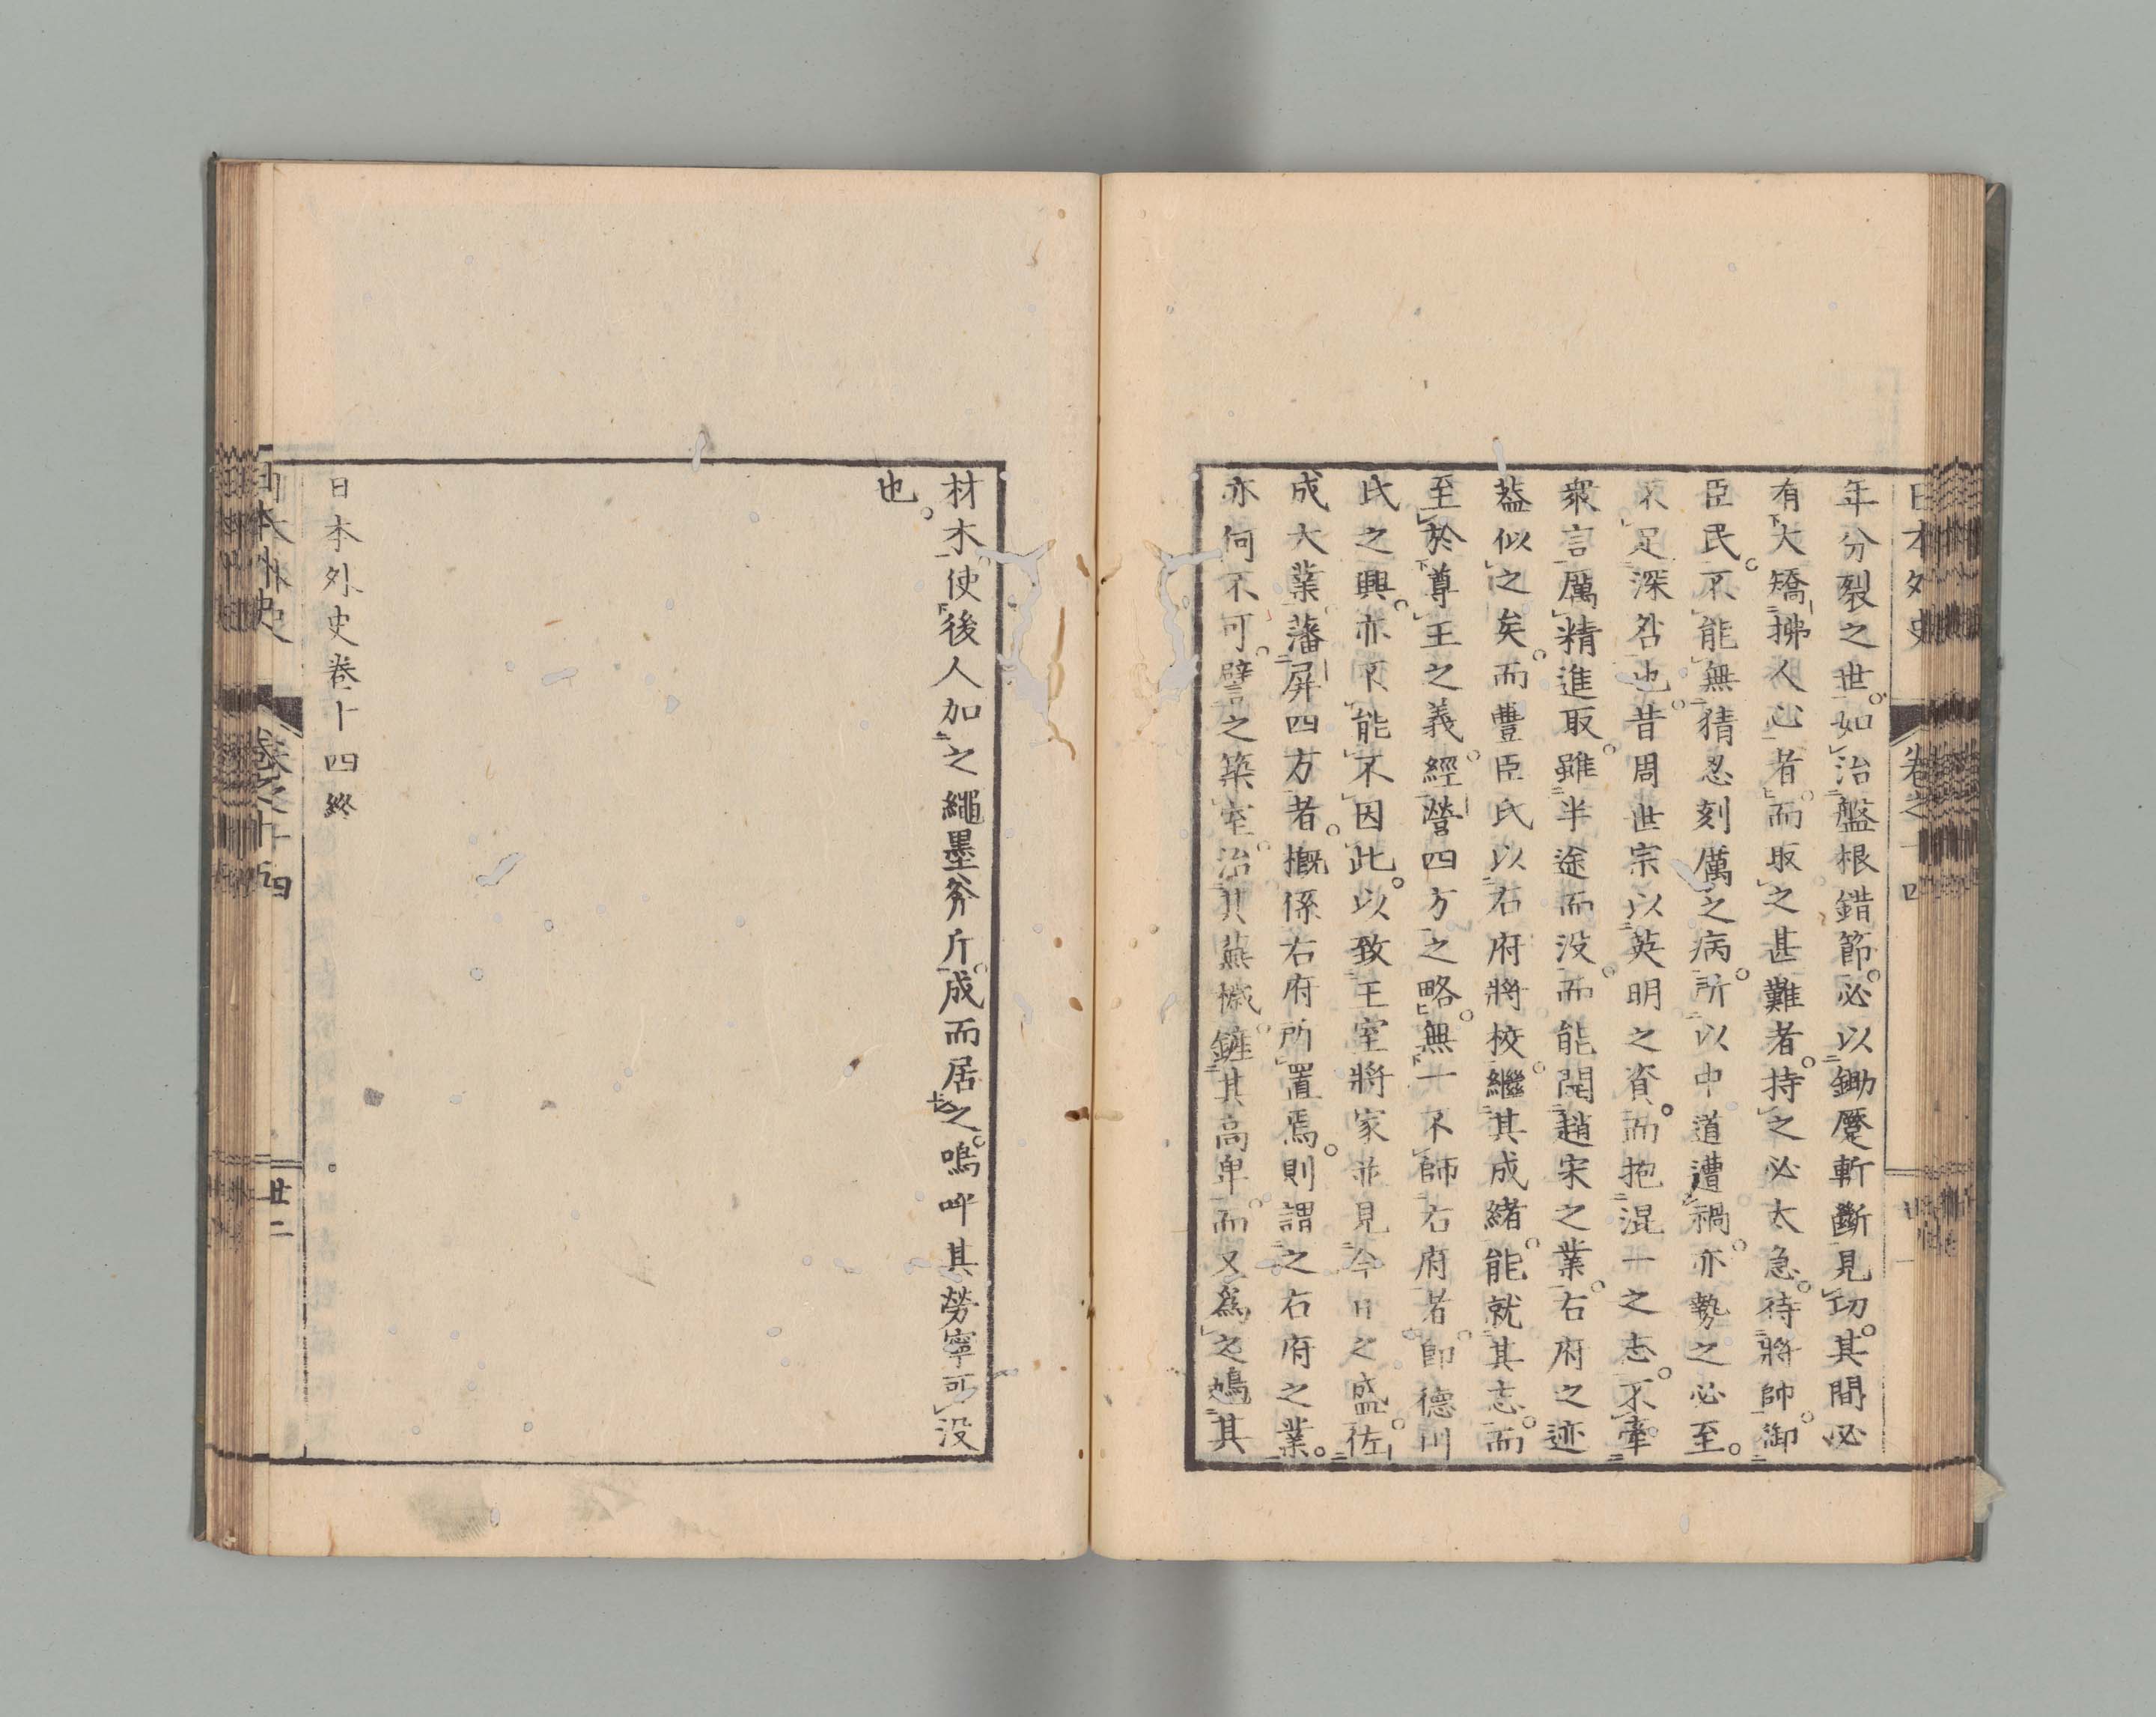 日本外史 卷之十四
年分裂之世。如治盤根錯節。必以鋤钁斬斷見功。其間必
有大矯拂人心者。而取之甚難者。持之必太急。待將帥。御
臣民。不能無猜忍刻厲之病。所以中道遭禍。亦勢之必至。
不足深咎也。昔周世宗以英明之資。而抱混一之志。不牽
衆言。厲精進取。雖半途而没。而能開趙宋之業。右府之迹
蓋似之矣。而豐臣氏以右府將校。繼其成緒。能就其志。而
至於尊王之義。經營四方之略。無一不師右府者。即德川
氏之興。亦不能不因此。以致王室將家並見今日之盛。佐
成大業。藩屏四方者。概係右府所置焉。則謂之右府之業。
亦何不可。譬之築室。治其蕪穢。鏟其高卑。而又爲之鳩其
材木。使後人加之繩墨斧斤。成而居之。嗚呼其勞寧可没
也。
日本外史卷十四終
日本外史 卷之十四 廿二